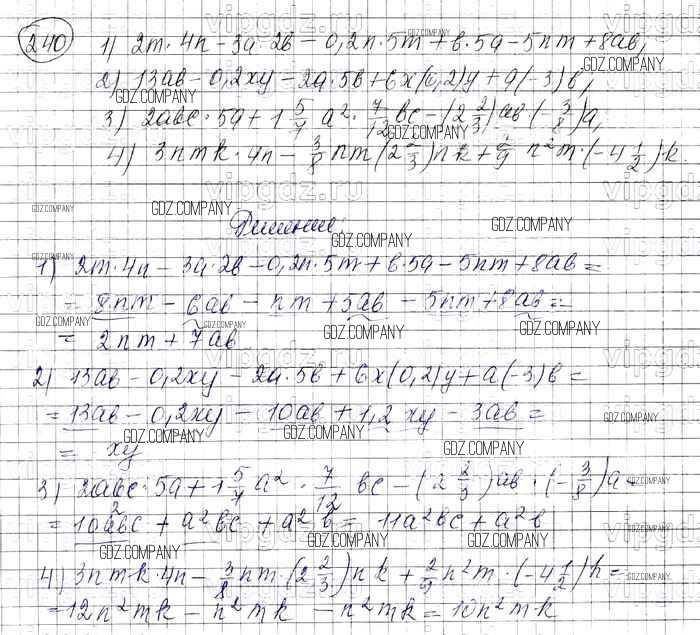 240 1) 2m·4n - 3a·2b - 0,2n·5m + b·5a - 5nm + 8ab,
2) 13ab - 0,2xy - 2a·5b + 6x(0,2)y + a(-3)b,
GDZ.COMPANY
3) 2abc·5a + 1 5/7 a²· 7/12 bc - (2 2/3)ab·(-3/8)a,
4) 3nmk·4n - 3/8 nm(2 2/3)nk + 2/9 n²m·(-4 1/2)·k.
vipgdz.ru
GDZ.COMPANY
Решение:
1) 2m·4n - 3a·2b - 0,2n·5m + b·5a - 5nm + 8ab =
= 8nm - 6ab - nm + 5ab - 5nm + 8ab =
= 2nm + 7ab
2) 13ab - 0,2xy - 2a·5b + 6x(0,2)y + a(-3)b =
= 13ab - 0,2xy - 10ab + 1,2xy - 3ab =
= xy
3) 2abc·5a + 1 5/7 a²· 7/12 bc - (2 2/3)ab·(-3/8)a =
= 10a²bc + a²bc + a²b = 11a²bc + a²b
4) 3nmk·4n - 3/8 nm·(2 2/3)nk + 2/9 n²m·(-4 1/2)k =
= 12n²mk - n²mk - n²mk = 10n²mk